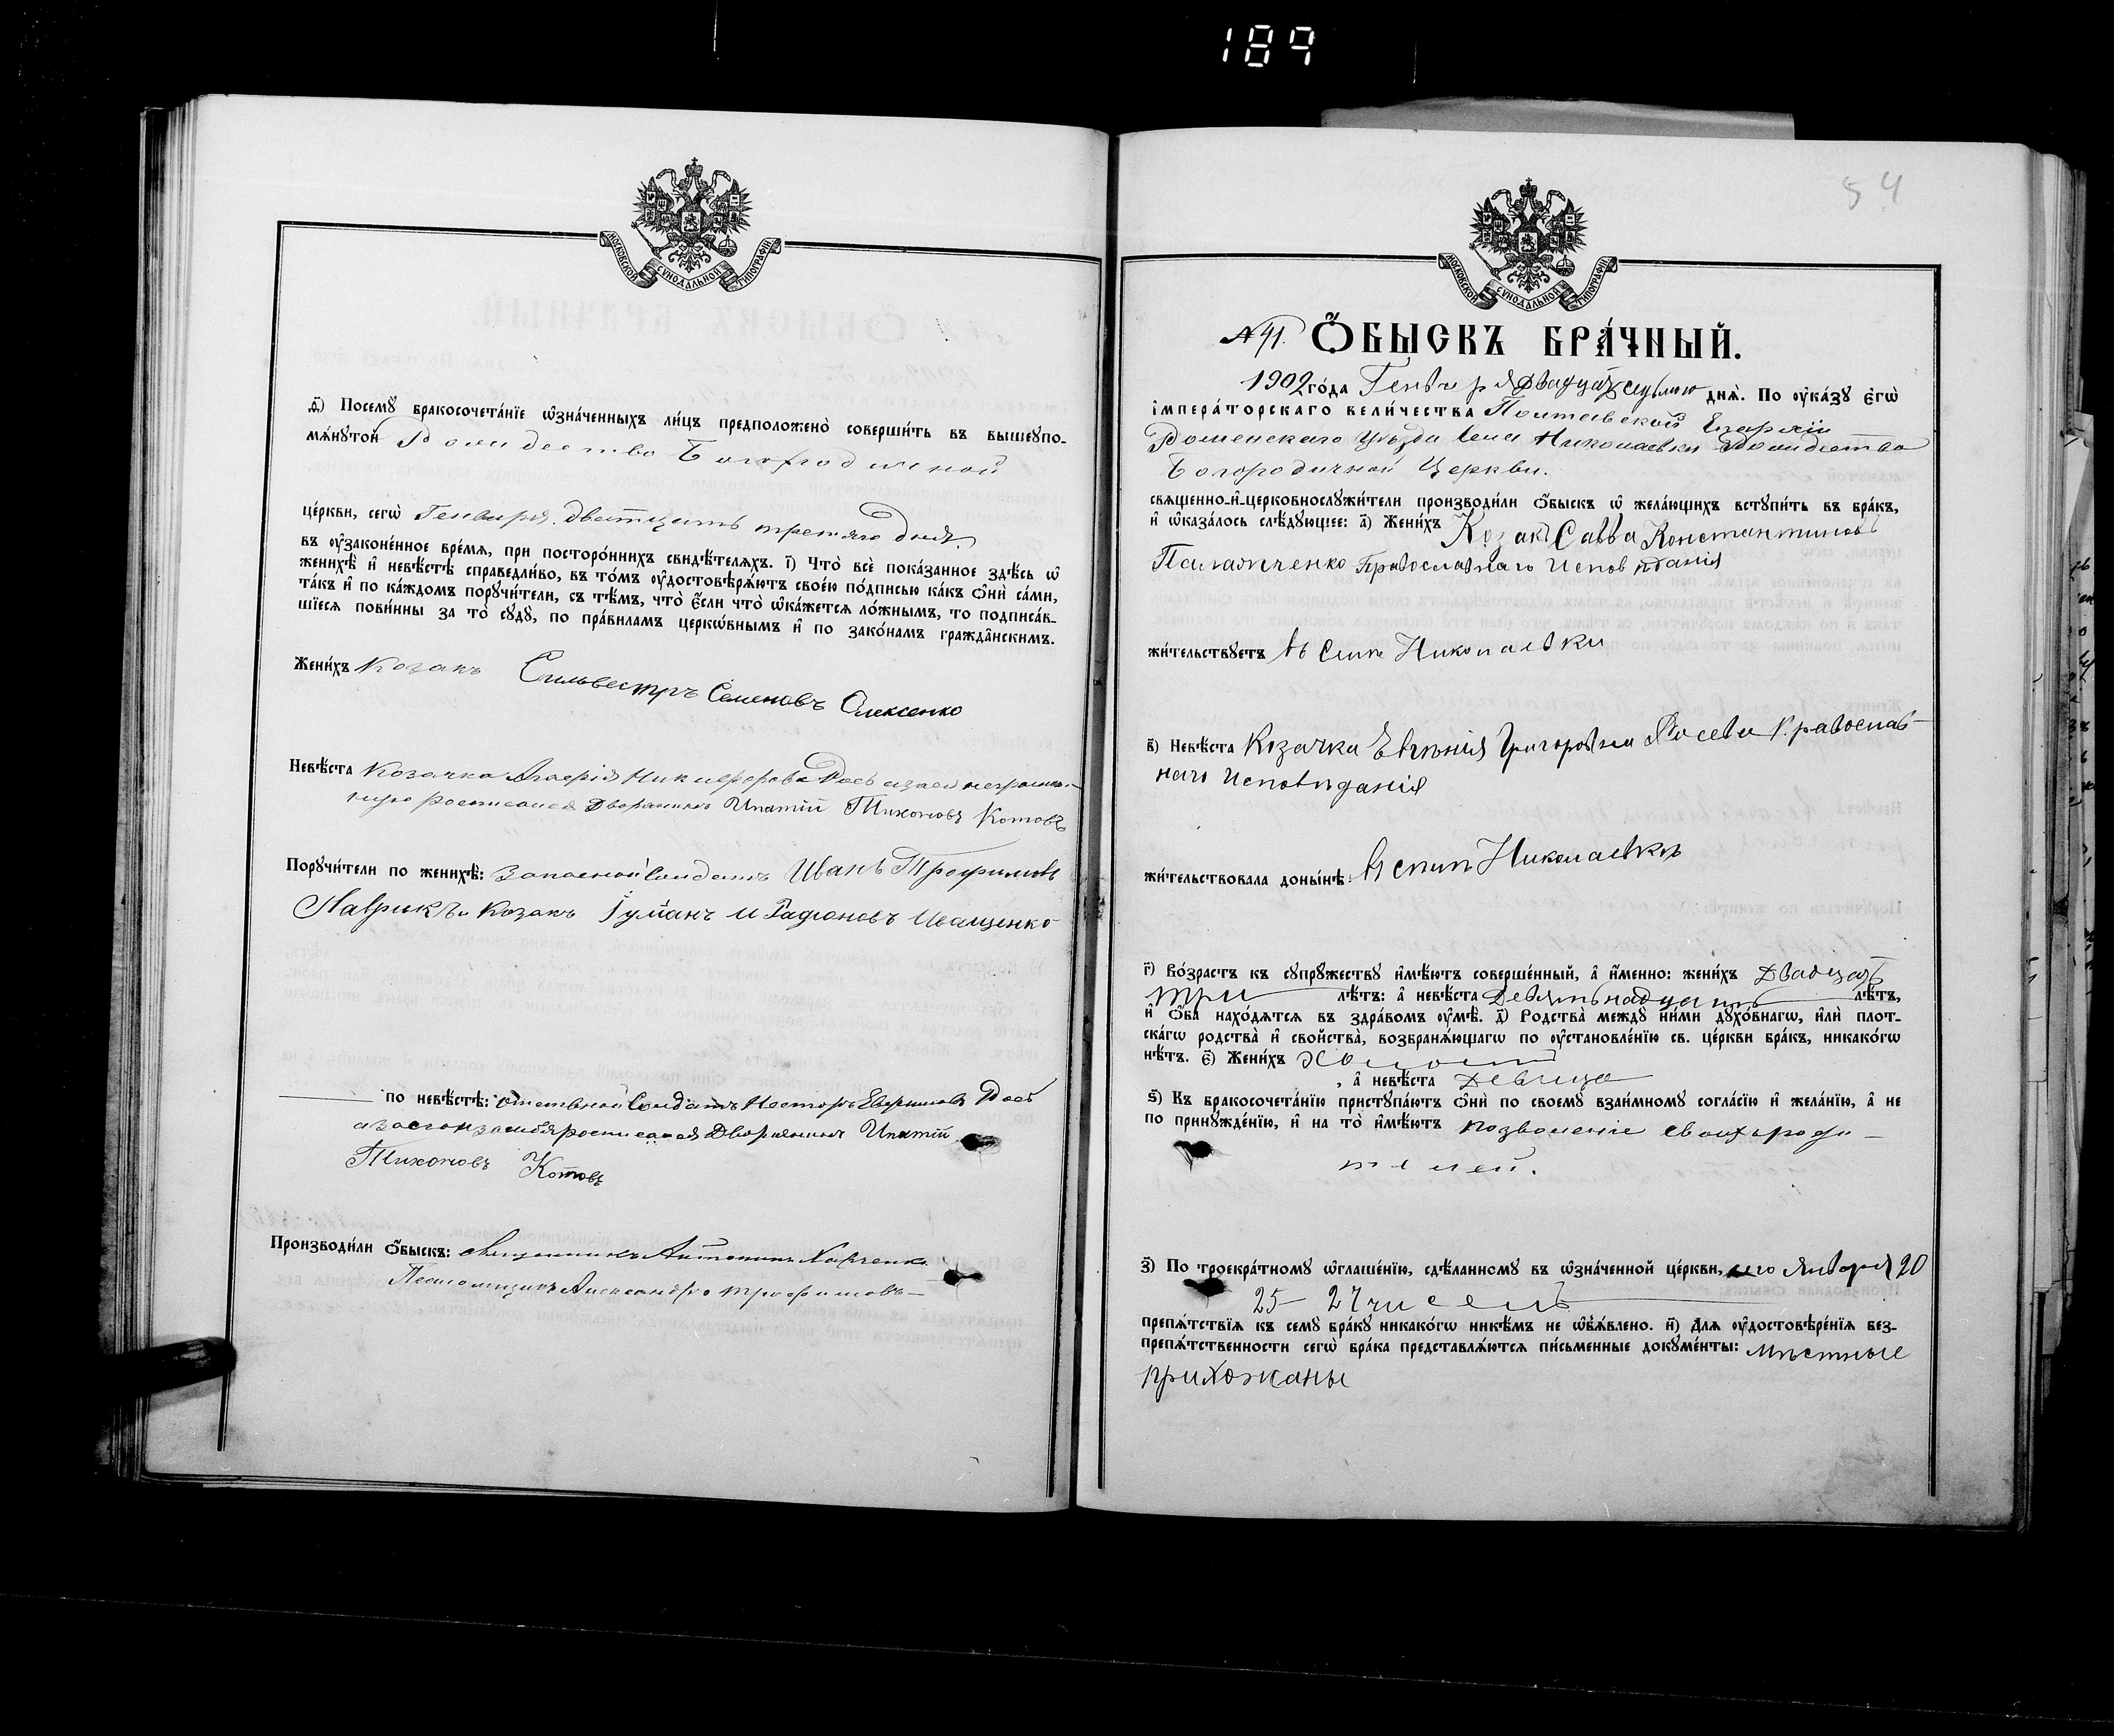 189
МОСКОВСКОЙ СУНОДАЛЬНОЙ ТИПОГРАФІИ
д҃) Посемꙋ̀ бракосочета́нїе ѡ҆зна́ченныхъ ли́цъ предположено̀ соверши́ть въ вышеꙋпо-
мѧ́нꙋтой Рождество Богородичной
це́ркви, сегѡ̀ Генваря двадцать третяго дня.
въ ᲂу҆зако́ненное вре́мѧ, при посторо́ннихъ свидѣ́телѧхъ. і҃) Что̀ всѐ пока́занное здѣ́сь ѡ҆
женихѣ̀ и҆ невѣ́стѣ справедли́во, въ то́мъ ᲂу҆достовѣрѧ́ютъ свое́ю по́дписью ка́къ ѻ҆нѝ са́ми,
та́къ и҆ по ка́ждомъ порꙋчи́тели, съ тѣ́мъ, что̀ є҆́сли что̀ ѡ҆ка́жетсѧ ло́жнымъ, то подписа́в-
шїесѧ пови́нны за то̀ сꙋдꙋ̀, по пра́виламъ церко́внымъ и҆ по зако́намъ гражда́нскимъ.
Жени́хъ Козакъ Сильвестръ Семеновъ Олексенко
Невѣ́ста Козачка Никифорова
росписался Дворянинъ Ипатій Тихоновъ Котовъ
Порꙋчи́тели по женихѣ̀: Запасной Солдатъ Иванъ Трофимовъ
Лаврикъ и Козакъ Іуліанъ Иващенко
по невѣ́стѣ: Солдатъ Несторъ
росписался Дворянинъ Ипатій
Тихоновъ Котовъ
Производи́ли ѻ҆́быскъ: Священникъ Антонинъ Харченко
Псаломщикъ Александръ Трофимовъ
54
МОСКОВСКОЙ СУНОДАЛЬНОЙ ТИПОГРАФІИ
№ 41. Ѻ҆́БЫСКЪ БРА́ЧНЫЙ.
1902 го́да Генваря двадцать седьмого днѧ̀. По ᲂу҆ка́зꙋ є҆гѡ̀
і҆мпера́торскагѡ вели́чества Полтавской Епархіи
Роменскаго Уѣзда села Николаевки Рождество
Богородичной Церкви.
свѧщенно-и҆-церковнослꙋжи́тели производи́ли ѻ҆́быскъ ѡ҆ жела́ющихъ встꙋпи́ть въ бра́къ,
и҆ ѡ҆каза́лось слѣ́дꙋющее: а҃) Жени́хъ Козакъ Савва Константиновъ
Православнаго Исповѣданія
жи́тельствꙋетъ въ селѣ Николаевки
в҃) Невѣ́ста Козачка Евгенія Григорьева Православ-
наго Исповѣданія
жи́тельствовала доны́нѣ: въ селѣ Николаевкѣ
г҃) Во́зрастъ къ сꙋпрꙋ́жествꙋ и҆мѣ́ютъ соверше́нный, а҆ и҆́менно: жени́хъ Двадцать
три лѣ́тъ: а҆ невѣ́ста Девятьнадцать лѣ́тъ,
и҆ ѻ҆́ба нахо́дѧтсѧ въ здра́вомъ ᲂу҆мѣ̀. д҃) Родства̀ междꙋ̀ ни́ми дꙋхо́внагѡ, и҆лѝ плот-
ска́гѡ родства̀ и҆ сво́йства̀, возбранѧ́ющагѡ по ᲂу҆становле́нїю св. це́ркви бра́къ, никако́гѡ
нѣ́тъ. є҃) Жени́хъ Холостъ
, а҆ невѣ́ста Девица
ѕ҃) Къ бракосочета́нїю пристꙋпа́ютъ ѻ҆нѝ по своемꙋ̀ взаи́мномꙋ согла́сїю и҆ жела́нїю, а҆ не
по принꙋжде́нїю, и҆ на то̀ и҆мѣ́ютъ позволеніе своихъ роди-
телей.
з҃) По троекра́тномꙋ ѡ҆глаше́нїю, сдѣ́ланномꙋ въ ѡ҆зна́ченной це́ркви, Января 20
25 – 27 чиселъ
препѧ́тствїѧ къ семꙋ̀ бра́кꙋ никако́гѡ никѣ́мъ не ѡ҆б̾ѧ́влено. и҃) Длѧ ᲂу҆достовѣре́нїѧ без-
препѧ́тственности сегѡ̀ бра́ка представлѧ́ютсѧ пи́сьменные докꙋме́нты: мѣстные
прихожаны